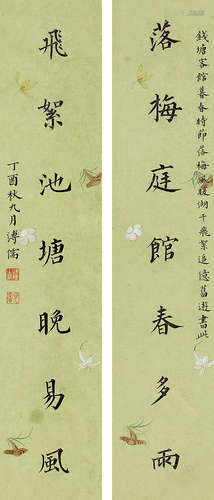 錢塘客館暮春時節落梅湖干飛絮追憶舊遊書此
落梅庭館春多雨
飛絮池塘晚易風
丁酉秋九月溥儒